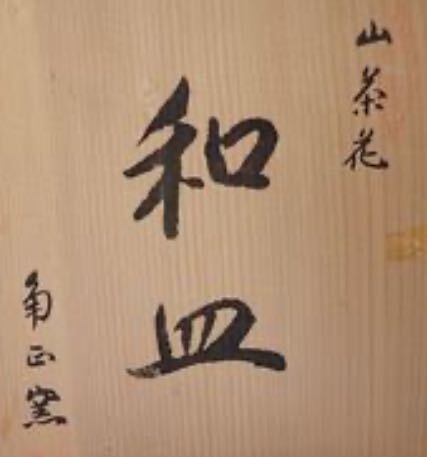 山茶花
和皿
角正窯